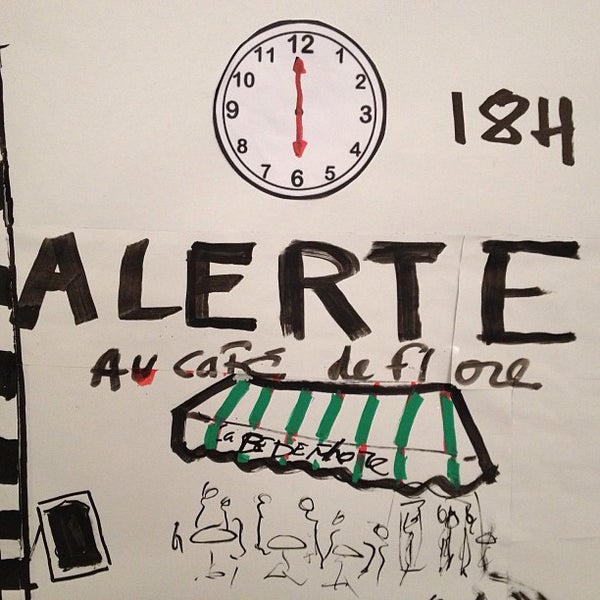 12
11 1
10 2
9 3
8 4
7 5
6
18H
ALERTE
AU CAFE de flore
DE Flore